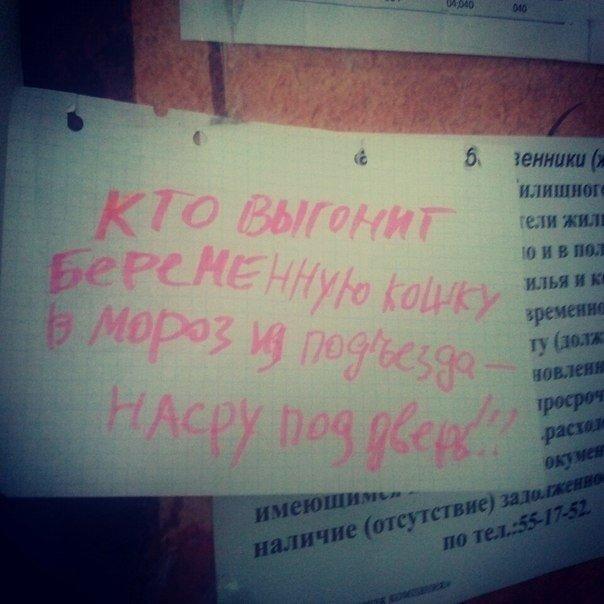 04,040 040
КТО ВЫГОНИТ
БЕРЕМЕННУЮ КОШКУ
В МОРОЗ ИЗ ПОДЪЕЗДА —
НАСРУ ПОД ДВЕРЬ!!!
венники (ж
илищного
ели жил
о и в пол
илья и к
временно
ту (долж
новлен
просроч
расход
окумен
имеющимся
наличие (отсутствие) задолженно
по тел.:55-17-52.